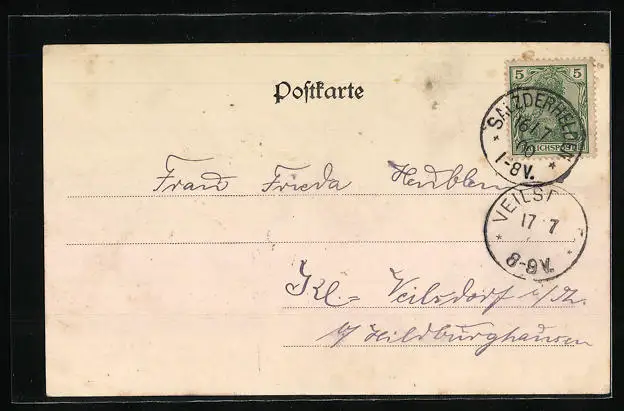 5 5
REICHSPOST
SALZDERHELDEN
16/7
00
1-8V.
Postkarte
Frau Frieda
VEILSD
17 7
8-9V.
Kl= Veilsdorf i/Th.
b/Hildburghausen